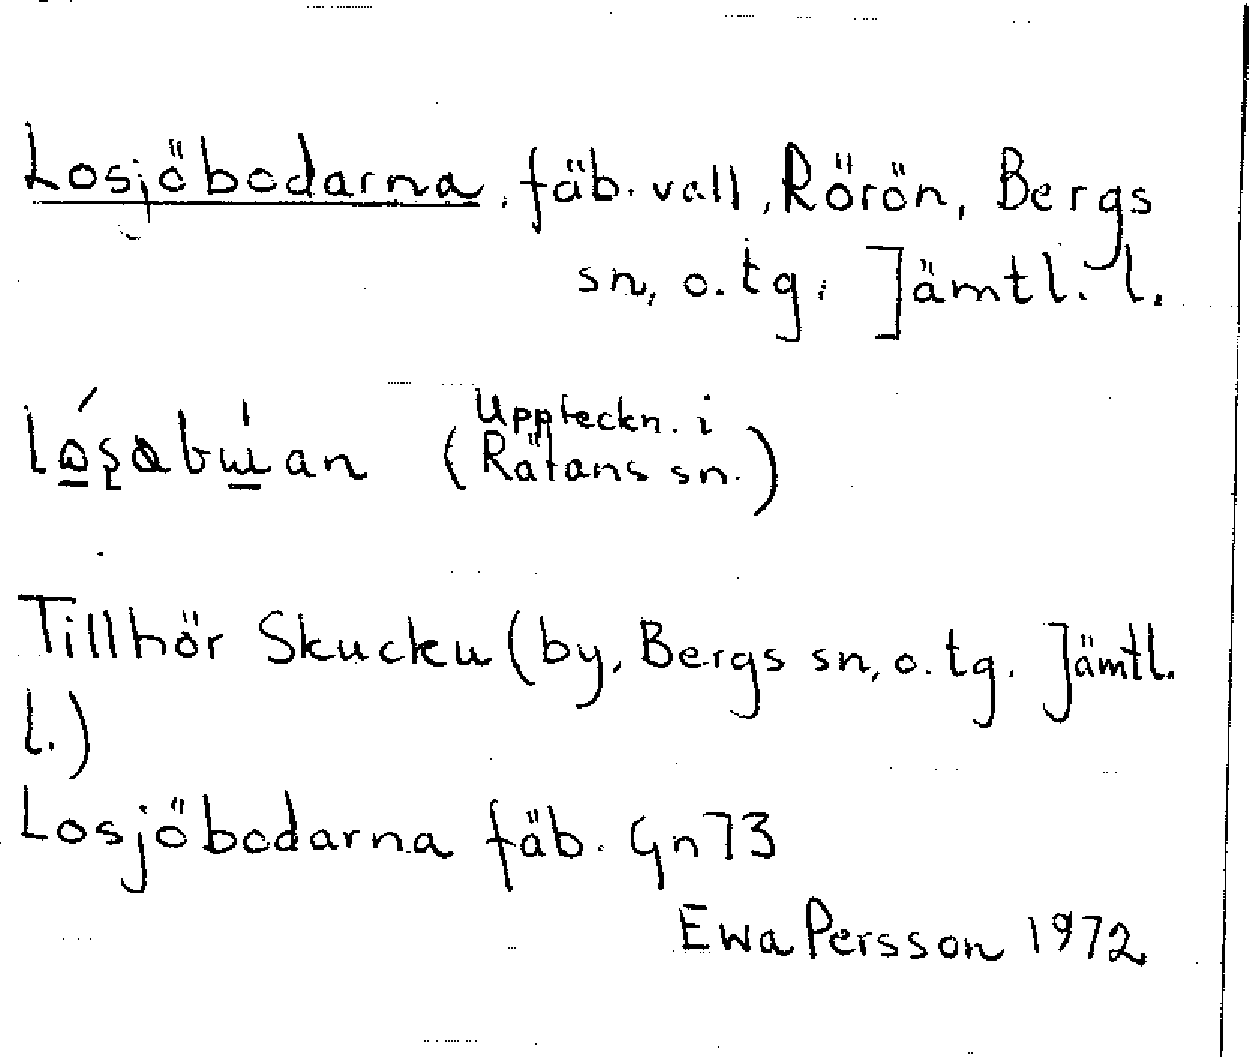 Losjöbodarna, fäb. vall, Rörön, Bergs
sn, o. tg. Jämtl. l.
(Uppteckn. i
Rätans sn.)
Tillhör Skucku (by, Bergs sn, o. tg. Jämtl.
l.)
Losjöbodarna fäb. Gn73
Ewa Persson 1972